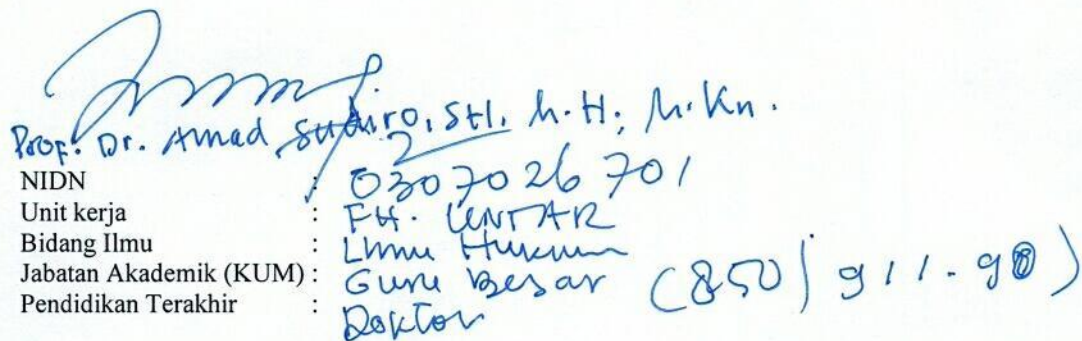 Prof. Dr. Amad Sudiro, S.H., M.H., M.Kn.
NIDN : 0307026701
Unit kerja : FH. UNTAR
Bidang Ilmu : Ilmu Hukum
Jabatan Akademik (KUM) : Guru Besar (850) 911.90)
Pendidikan Terakhir : Doktor